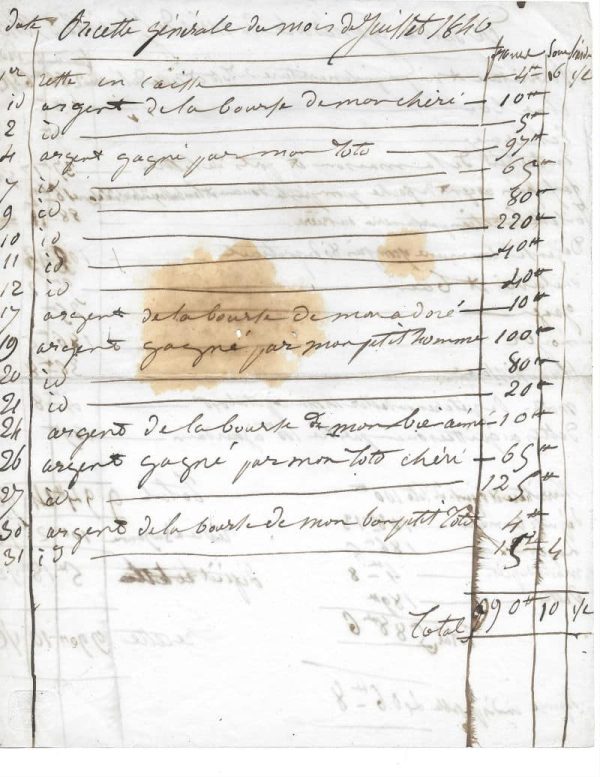 date Recette générale du mois de Juillet 1840
francs Sous liards
1er reste en caisse 4# 6 1/2
id argent de la bourse de mon chéri 10#
2 id 5#
4 argent gagné par mon Toto 97#
7 id 65#
9 id 80#
10 id 220#
11 id 40#
12 id 40#
17 argent de la bourse de mon adoré 10#
19 argent gagné par mon ptit homme 100#
20 id 80#
21 id 20#
24 argent de la bourse de mon bie aimé 10#
26 argent gagné par mon Toto chéri 65#
27 id 125#
30 argent de la bourse de mon bon ptit Toto 4#
31 id 4
Total 990# 10 1/2